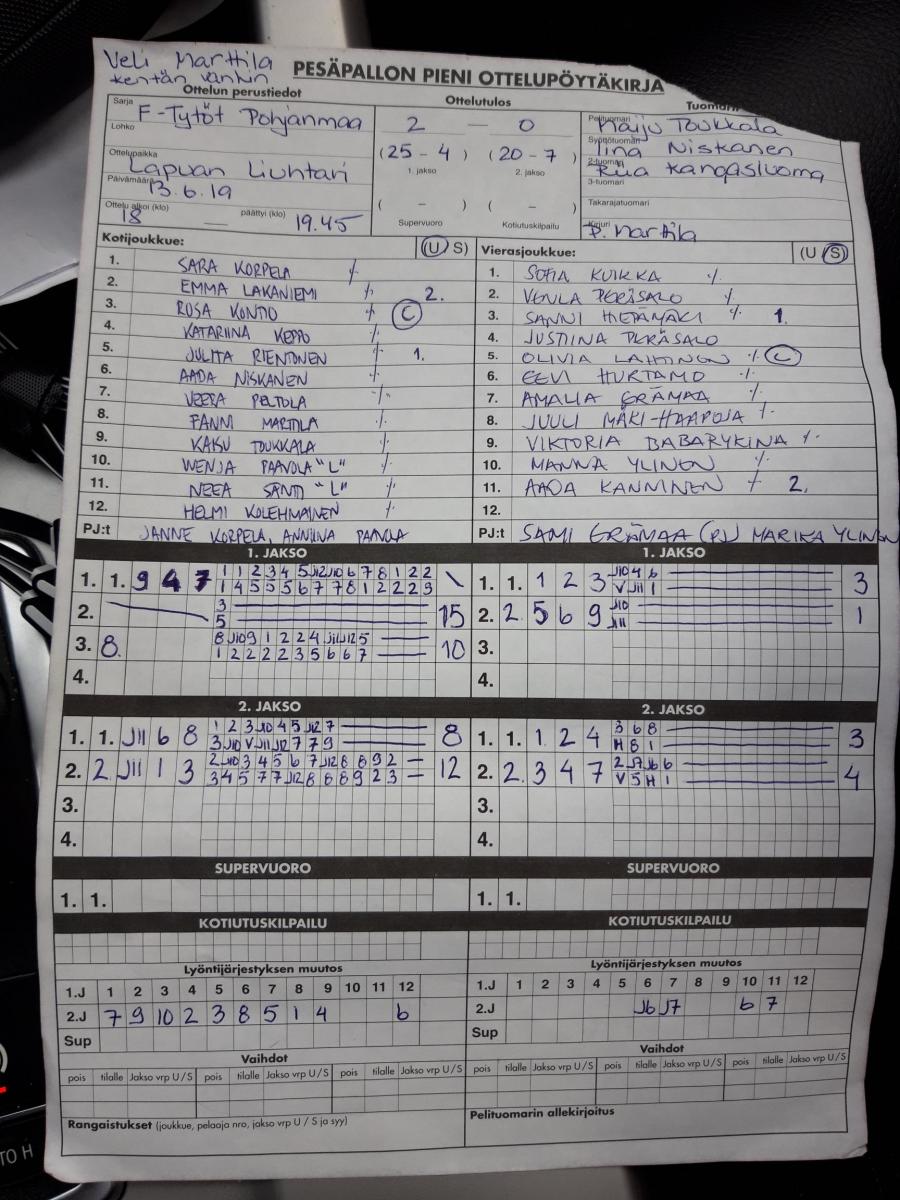 Veli Marttila
kentän vanhin
PESÄPALLON PIENI OTTELUPÖYTÄKIRJA
Ottelun perustiedot
Sarja F-Tytöt Pohjanmaa
Lohko
Ottelupaikka Lapuan Liuhtari
Päivämäärä 13.6.19
Ottelu alkoi (klo) 18 päättyi (klo) 19.45
Ottelutulos
2 — 0
(25 - 4) (20 - 7)
1. jakso 2. jakso
( - ) ( - )
Supervuoro Kotiutuskilpailu
Pelituomari Maiju Toukkala
Syöttötuomari Iina Niskanen
2-tuomari Riia Kangasluoma
3-tuomari
Takarajatuomari
Kirjuri P. Marttila
Kotijoukkue: (U/S)
1. SARA KORPELA ٪
2. EMMA LAKANIEMI ٪ 2.
3. ROSA KONTIO ٪ C
4. KATARIINA KEPPO ٪
5. JULITA RIENTONEN ٪ 1.
6. AADA NISKANEN ٪
7. VEERA PELTOLA ٪
8. FANNI MARTTILA ٪
9. KAISU TOUKKALA ٪
10. WENJA PAAVOLA "L" ٪
11. NEEA SANTI "L" ٪
12. HELMI KOLEHMAINEN ٪
PJ:t JANNE KORPELA, ANNIINA PAAVOLA
Vierasjoukkue: (U/S)
1. SOFIA KUIKKA ٪
2. VENLA PERÄSALO ٪
3. SANNI HIETAMÄKI ٪ 1.
4. JUSTIINA PERÄSALO
5. OLIVIA LAHTINEN ٪ C
6. EEVI HURTAMO ٪
7. AMALIA ERÄMAA ٪
8. JUULI MÄKI-HAAPOJA ٪
9. VIKTORIA BABARYKINA ٪
10. MANNA YLINEN ٪
11. AADA KANNINEN ٪ 2.
12.
PJ:t SAMI ERÄMAA (PJ) MARIKA YLINEN
1. JAKSO
1. 1. 9 4 7 1 1 2 3 4 5 J12 J10 6 7 8 1 2 2
1 4 5 5 5 6 7 7 8 1 2 2 2 9
2. 3 15
5
3. 8. 8 J10 9 1 2 2 4 J11 J12 5 10
1 2 2 2 2 3 5 6 6 7
4.
1. JAKSO
1. 1. 1 2 3 J10 4 6 3
V J11 1
2. 2. 5 6 9 J10 1
J11
3.
4.
2. JAKSO
1. 1. J11 6 8 1 2 3 J10 4 5 J12 7 8
3 J10 V J11 J12 7 7 9
2. 2 J11 1 3 2 J10 3 4 5 6 7 J12 8 8 9 2 12
3 4 5 7 7 J12 8 8 8 9 2 3
3.
4.
2. JAKSO
1. 1. 1 2 4 3 6 8 3
H 8 1
2. 2. 3 4 7 2 J7 J6 6 4
V 5 H 1
3.
4.
SUPERVUORO
1. 1.
SUPERVUORO
1. 1.
KOTIUTUSKILPAILU
KOTIUTUSKILPAILU
Lyöntijärjestyksen muutos
1.J 1 2 3 4 5 6 7 8 9 10 11 12
2.J 7 9 10 2 3 8 5 1 4 6
Sup
Lyöntijärjestyksen muutos
1.J 1 2 3 4 5 6 7 8 9 10 11 12
2.J J6 J7 6 7
Sup
Vaihdot
pois tilalle Jakso vrp U/S pois tilalle Jakso vrp U/S pois tilalle Jakso vrp U/S
Vaihdot
pois tilalle Jakso vrp U/S pois tilalle Jakso vrp U/S pois tilalle Jakso vrp U/S
Rangaistukset (joukkue, pelaaja nro, jakso vrp U / S ja syy)
Pelituomarin allekirjoitus
TO H